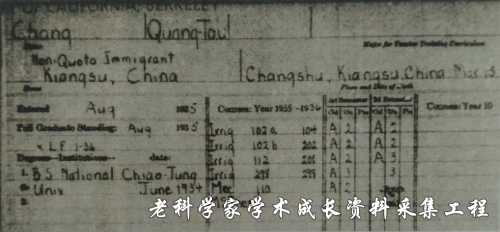 OF CALIFORNIA, BERKELEY
Chang Quang-Tou
Major for Teacher Training Curriculum
Non-Quota Immigrant
Kiangsu, China Changshu, Kiangsu, China Mar 13
Place and Date of Birth
Entered Aug 1935 Courses: Year 1935 -1936 1st Semester 2d Courses: Year 19
Full Graduate Standing: Aug 1935 Irrig 102a 104 A 2 A 2
LF 1-36 Irrig 102b 202 A 2 A 2
Degrees—Institutions— date: Irrig 112 201 A 2 A 3
1. B.S. National Chiao-Tung Irrig 298 298 A 3 3
Univ June 1934 Mec 110 A 2
老科学家学术成长资料采集工程